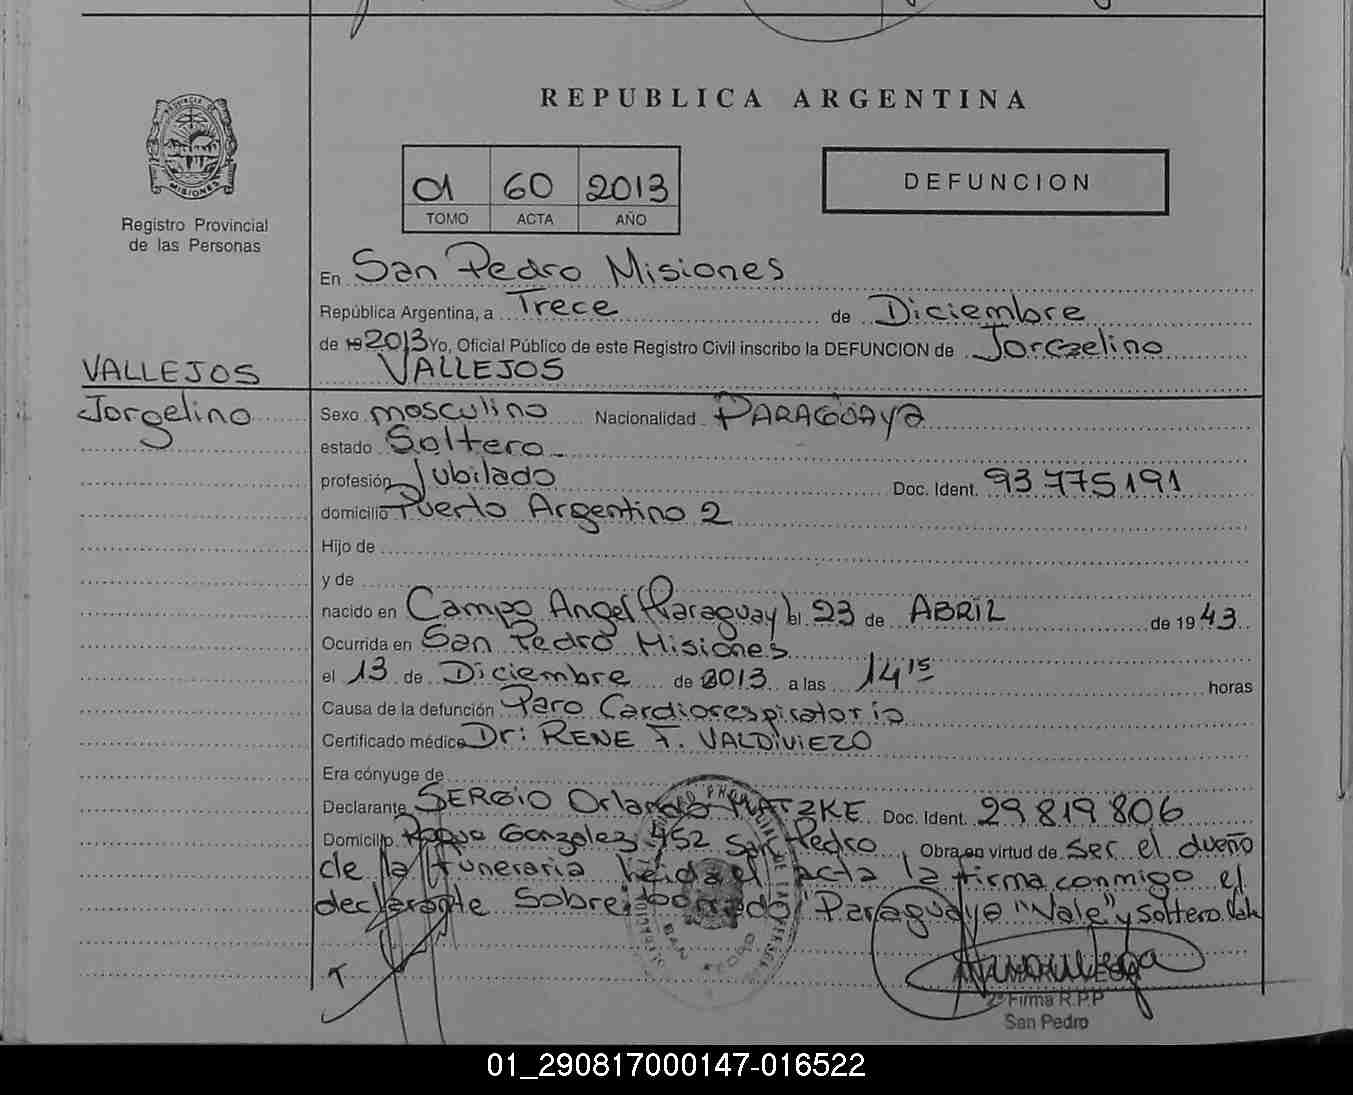 REPUBLICA ARGENTINA
PROVINCIA DE
MISIONES
Registro Provincial
de las Personas
01 60 2013
TOMO ACTA AÑO
DEFUNCION
En San Pedro Misiones
República Argentina, a Trece de Diciembre
de 19 2013 Yo, Oficial Público de este Registro Civil inscribo la DEFUNCION de Jorgelino
VALLEJOS
VALLEJOS
Jorgelino
Sexo masculino Nacionalidad PARAGUAYA
estado Soltero.-
profesión Jubilado Doc. Ident. 93 775 191
domicilio Puerto Argentino 2
Hijo de
y de
nacido en Campo Angel (Paraguay) el 23 de ABRIL de 19 43
Ocurrida en San Pedro Misiones
el 13 de Diciembre de 2013 a las 14 15 horas
Causa de la defunción Paro Cardiorespiratorio
Certificado médico Dr: RENE F. VALDIVIEZO
Era cónyuge de
Declarante SERGIO Orlando MATZKE Doc. Ident. 29 819 806
Domicilio Roque Gonzalez 952 San Pedro Obra en virtud de ser el dueño
de la funeraria leida el acta la firma conmigo el
declarante Sobre borrado "Paraguaya "Vale" y soltero. Vale
2º Firma R.P.P
San Pedro
01_290817000147-016522